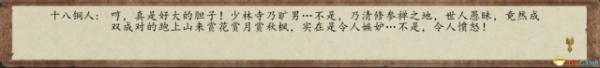 十八铜人： 哼，真是好大的胆子！少林寺乃旷男…不是，乃清修参禅之地，世人愚昧，竟然成
双成对的跑上山来赏花赏月赏秋枫，实在是令人嫉妒…不是，令人愤怒！